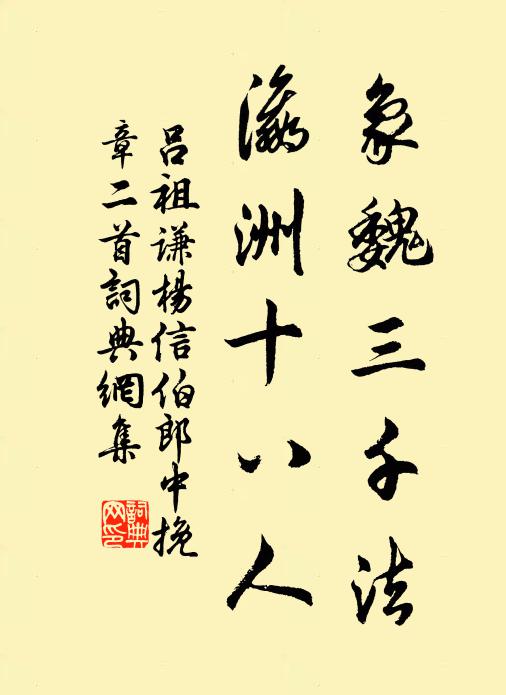 象魏三千法
瀛洲十八人
呂祖謙楊信伯郎中挽
章二首詞典網集
詞典
网印